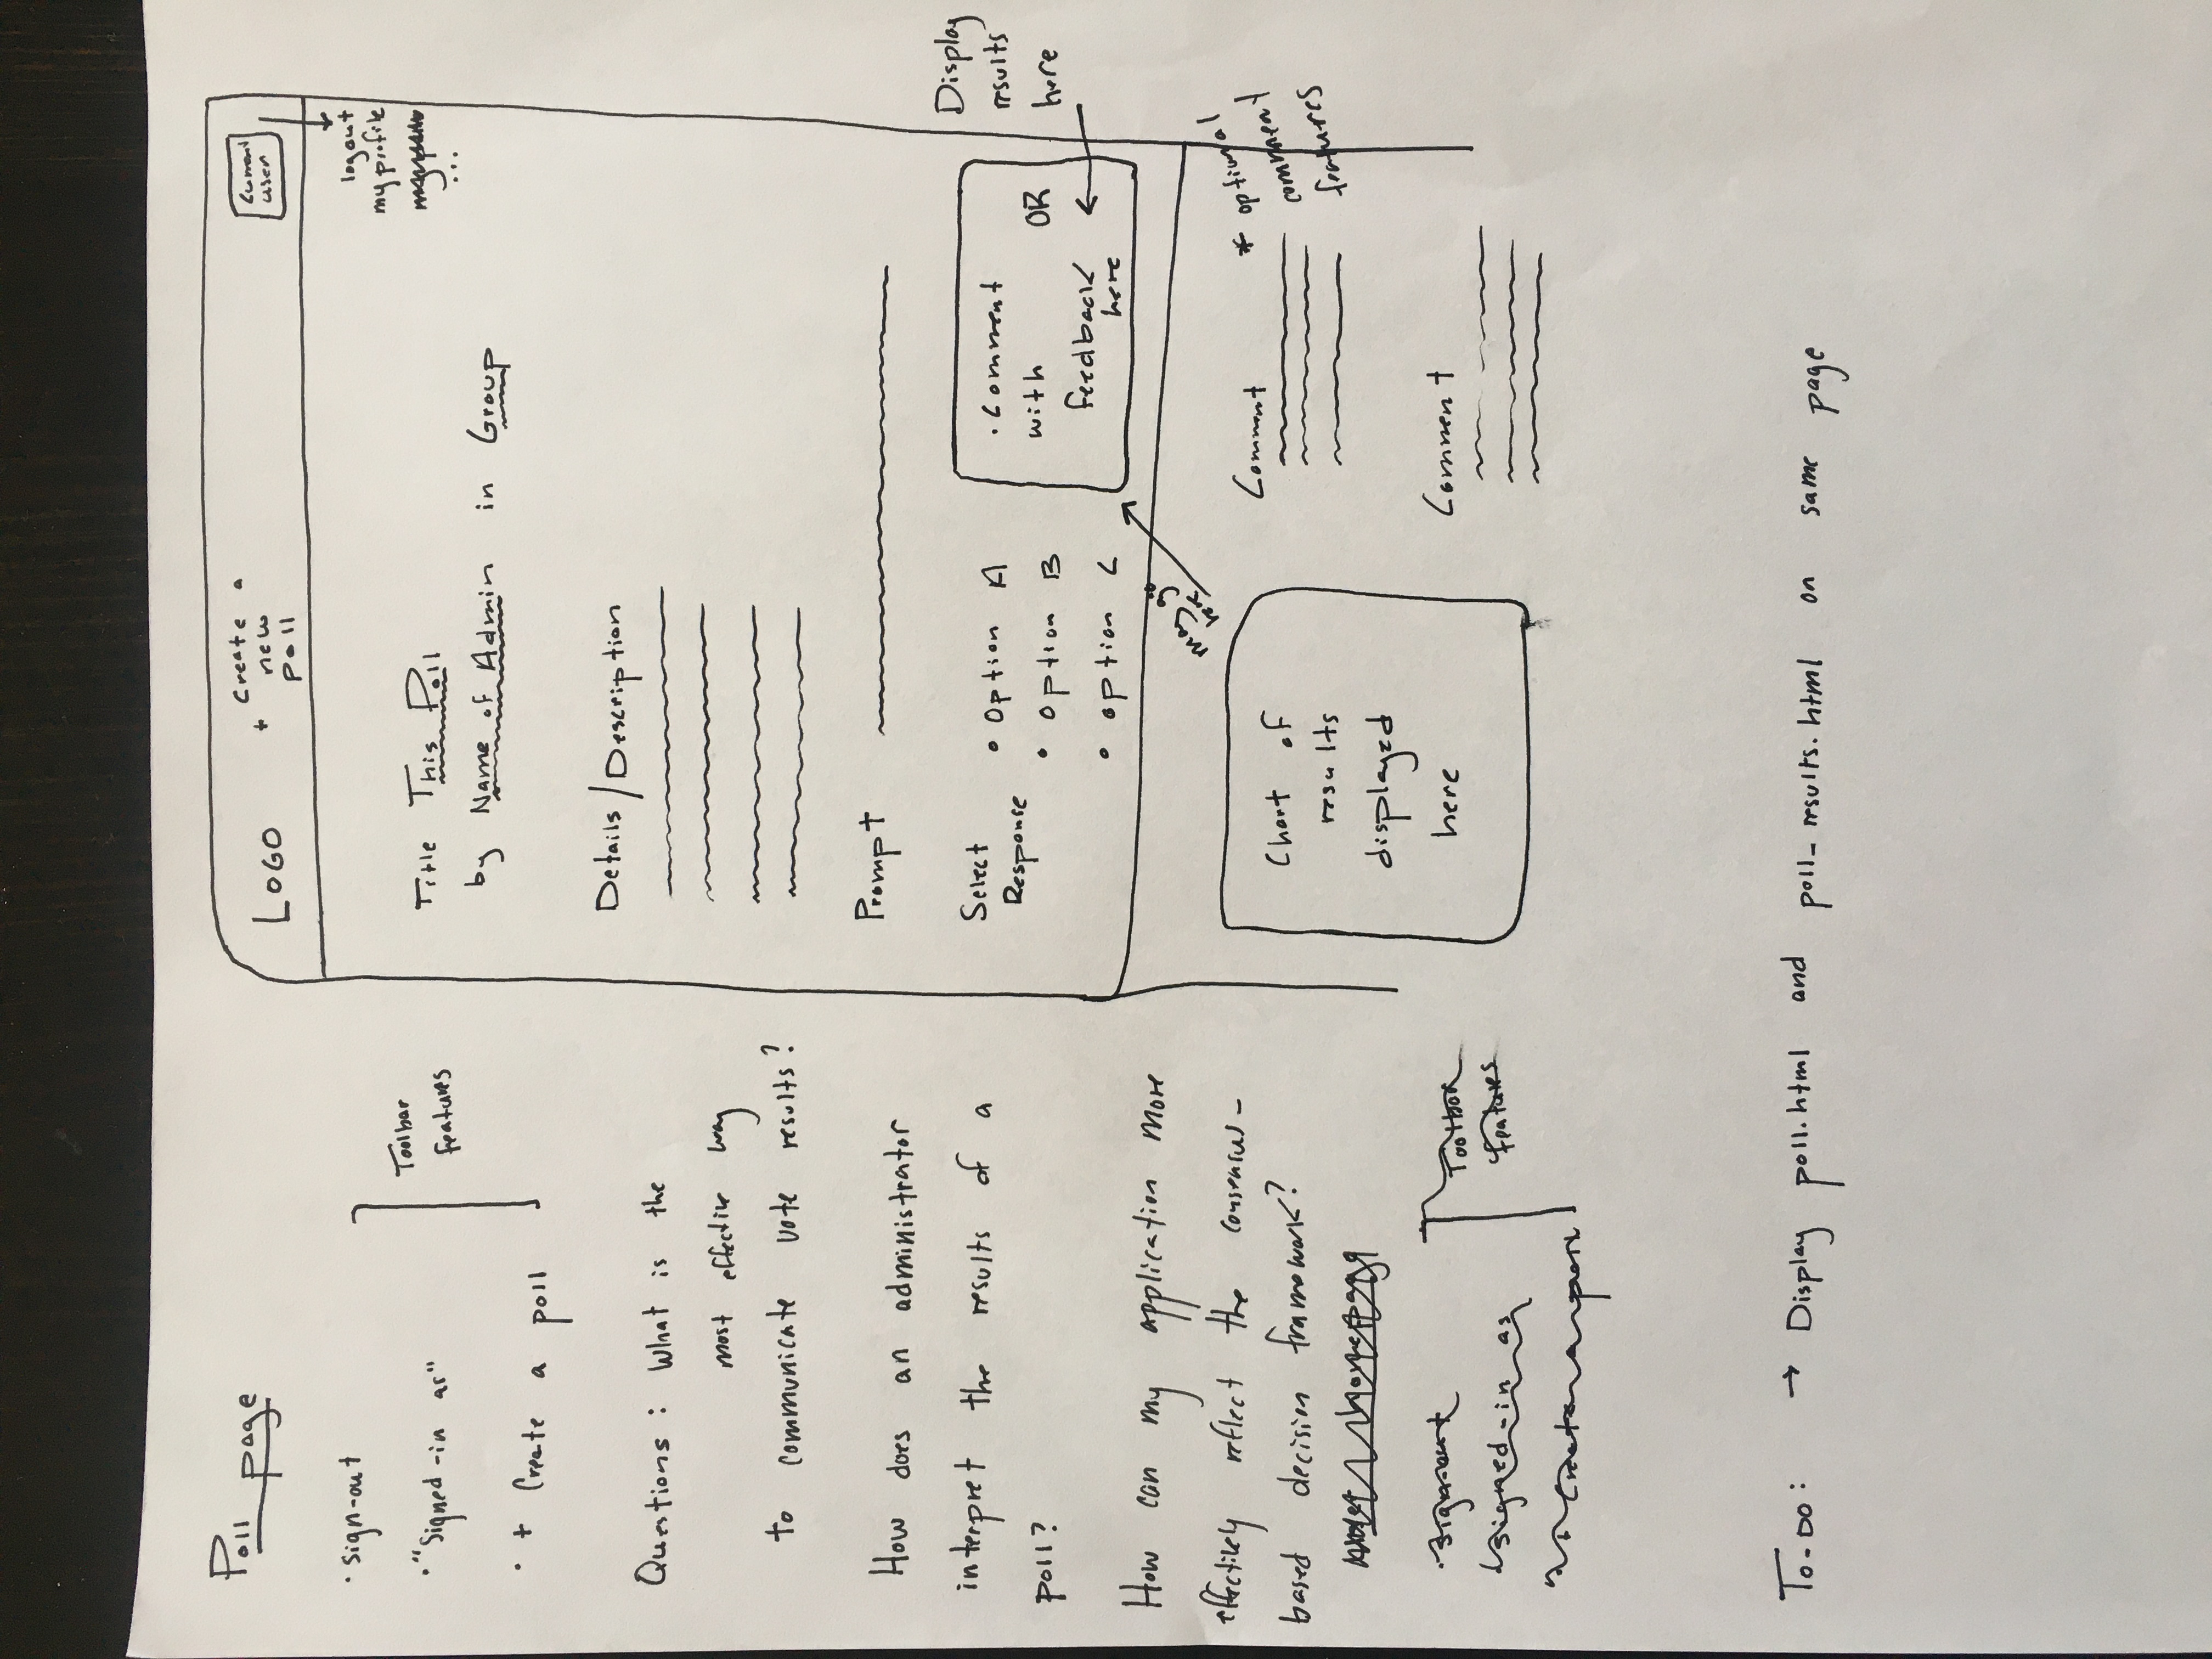 Poll page
· sign-out
· "Signed-in as"
· + Create a poll
Toolbar
features
Questions: What is the
most effective way
to communicate vote results?
How does an administrator
interpret the results of a
poll?
How can my application more
effectively reflect the consensus-
based decision framework?
homepage
· Sign-out
· Signed-in as
· + Create a poll
Toolbar
features
LOGO
+ Create a
new
poll
Current
user
logout
my profile
...
Title This Poll
by Name of Admin in Group
Details/Description
Prompt
Select
Response
• Option A
• Option B
• option C
· Comment
with OR
feedback
here
Display
results
here
may go
here
Chart of
results
displayed
here
Comment
* optional
comment
features
Comment
To-Do: → Display poll.html and poll_results.html on same page